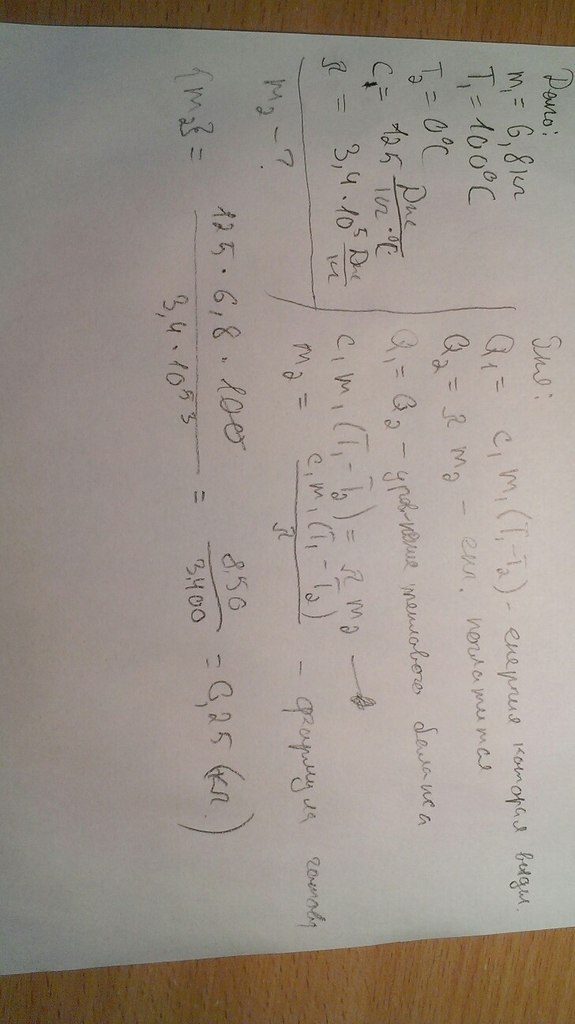 Дано:
m₁ = 6,8 кг
T₁ = 100°C
T₂ = 0°C
C₁ = 125 Дж/кг·°C
λ = 3,4·10⁵ Дж/кг
m₂ - ?
Q₁ = c₁m₁(T₁-T₂) - енергия которая выдел.
Q₂ = λ m₂ - енг. поглатится
Q₁ = Q₂ - уравнение теплового баланса
c₁m₁(T₁-T₂) = λ m₂ →
m₂ = c₁m₁(T₁-T₂)/λ - формула
{m₂} = 125·6,8·100/3,4·10⁵ = 850/3400 = 0,25 (кг)